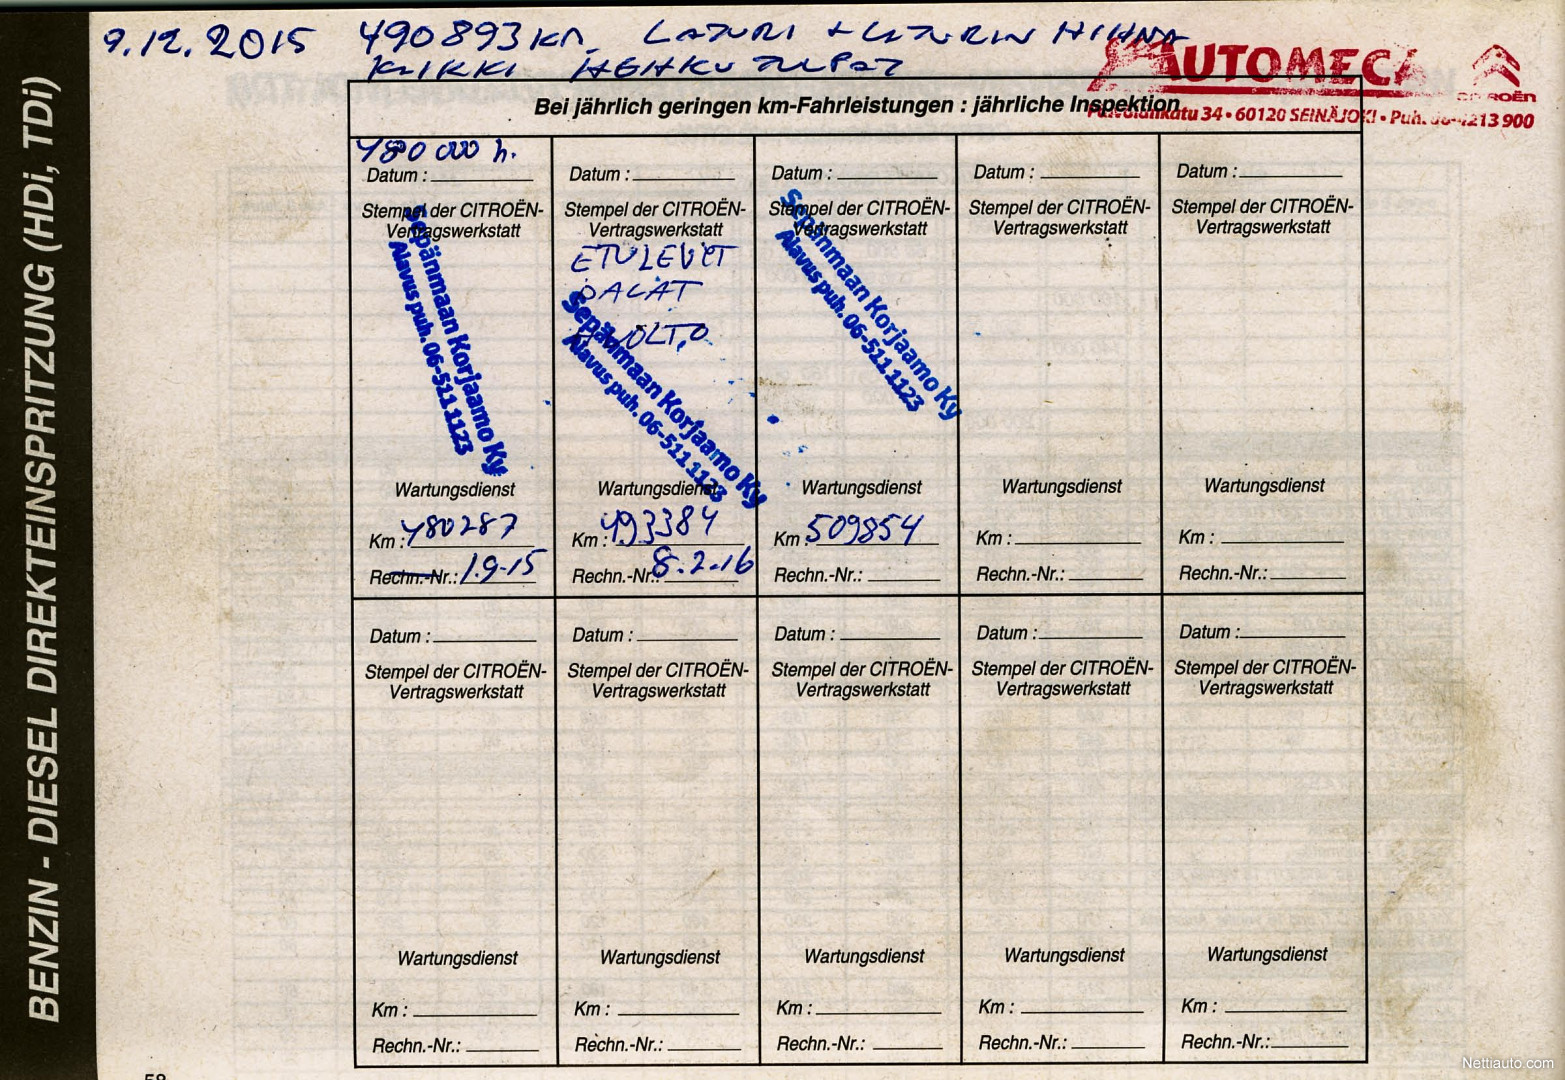 9.12.2015 490893 KM. LATURI + LATURIN HIHNA
KAIKKI HEHKUTULPAT
AUTOMECA
CITROËN
34 • 60120 SEINÄJOKI • Puh. 06-4213 900
BENZIN - DIESEL DIREKTEINSPRITZUNG (HDi, TDi)
Bei jährlich geringen km-Fahrleistungen : jährliche Inspektion
480 000 h.
Datum :
Stempel der CITROËN-
Vertragswerkstatt
Sepänmaan Korjaamo Ky
Alavus puh. 06-511 1123
Wartungsdienst
Km : 480287
Rechn.-Nr.: 1.9-15
Datum :
Stempel der CITROËN-
Vertragswerkstatt
ETULEVYT
PALAT
HUOLTO
Sepänmaan Korjaamo Ky
Alavus puh. 06-511 1123
Wartungsdienst
Km : 493384
Rechn.-Nr.: 8.2-16
Datum :
Stempel der CITROËN-
Vertragswerkstatt
Sepänmaan Korjaamo Ky
Alavus puh. 06-511 1123
Wartungsdienst
Km : 509854
Rechn.-Nr.:
Datum :
Stempel der CITROËN-
Vertragswerkstatt
Wartungsdienst
Km :
Rechn.-Nr.:
Datum :
Stempel der CITROËN-
Vertragswerkstatt
Wartungsdienst
Km :
Rechn.-Nr.:
Datum :
Stempel der CITROËN-
Vertragswerkstatt
Wartungsdienst
Km :
Rechn.-Nr.:
Datum :
Stempel der CITROËN-
Vertragswerkstatt
Wartungsdienst
Km :
Rechn.-Nr.:
Datum :
Stempel der CITROËN-
Vertragswerkstatt
Wartungsdienst
Km :
Rechn.-Nr.:
Datum :
Stempel der CITROËN-
Vertragswerkstatt
Wartungsdienst
Km :
Rechn.-Nr.:
Datum :
Stempel der CITROËN-
Vertragswerkstatt
Wartungsdienst
Km :
Rechn.-Nr.:
Nettiauto.com